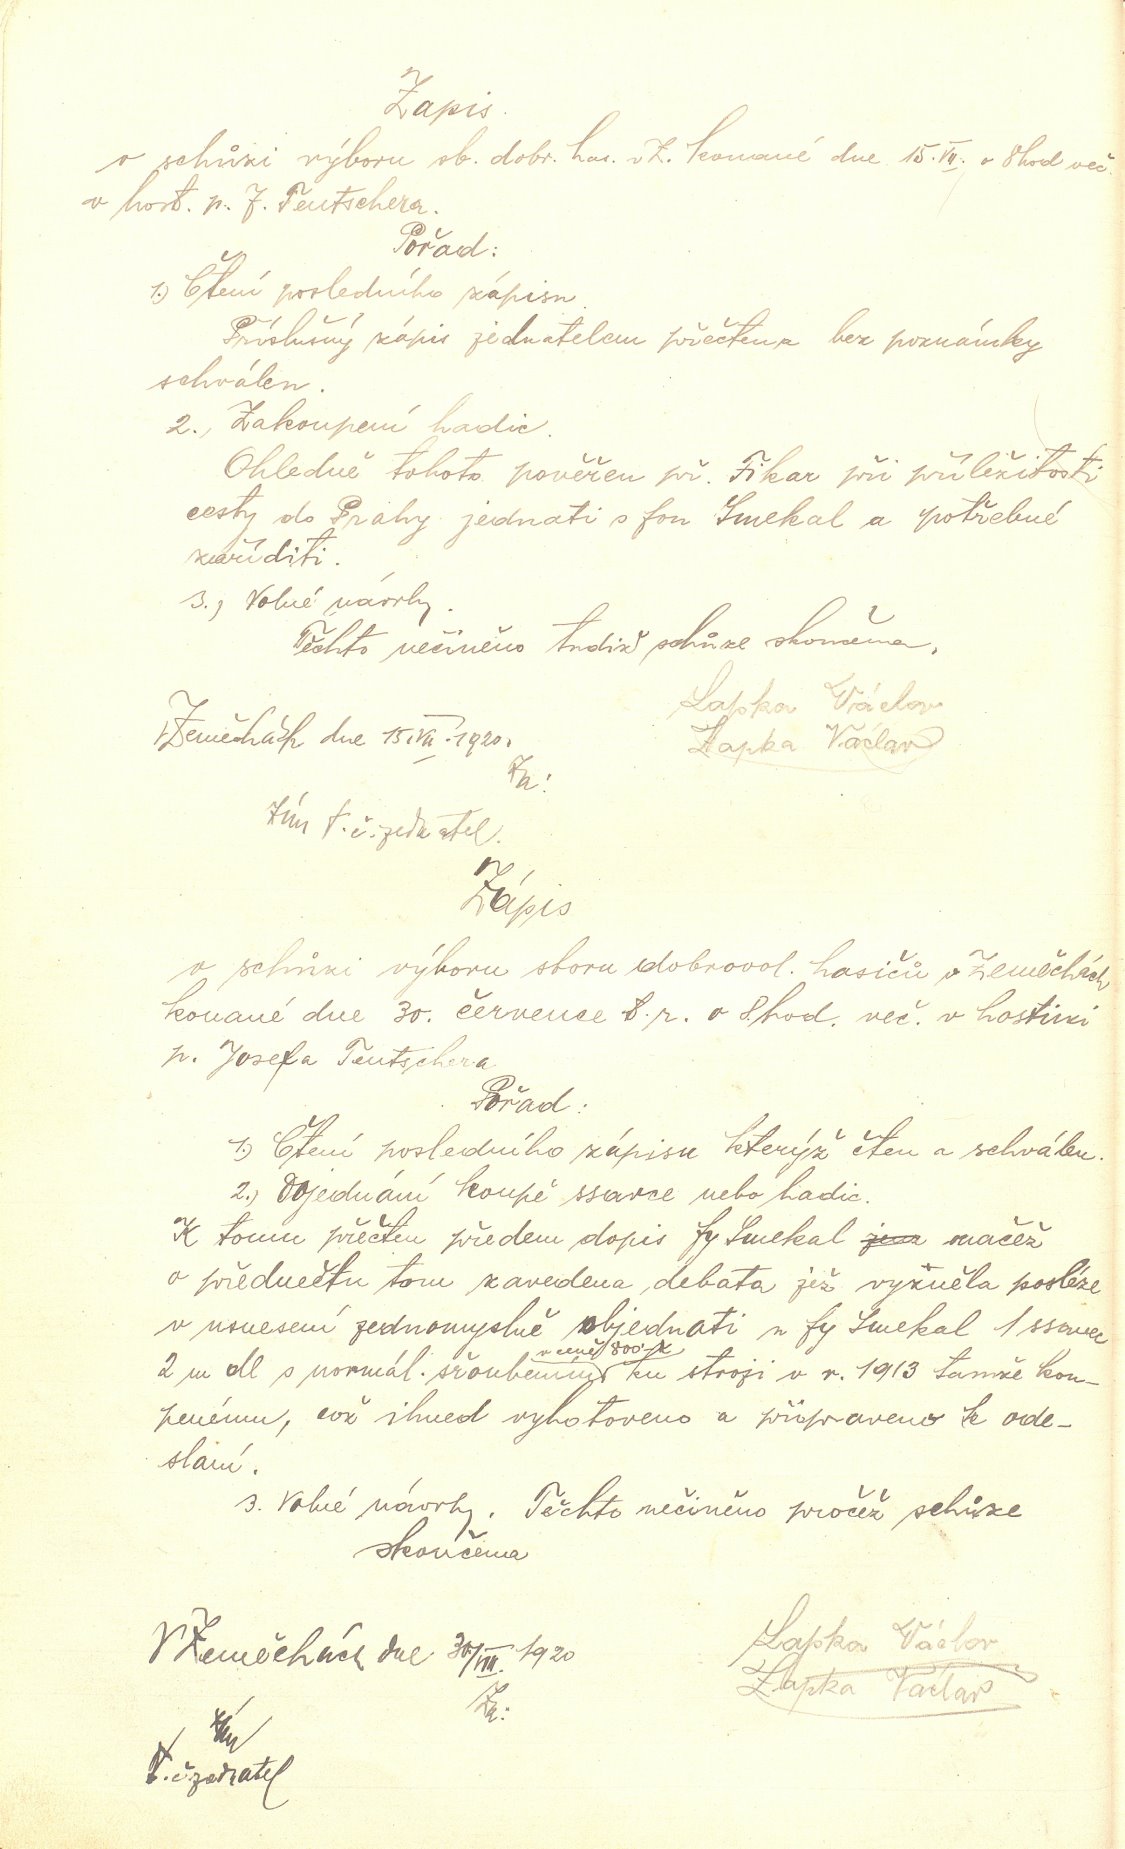 Zápis
o schůzi výboru sb. dobr. has. v Z. konané dne 15.VII. o 8 hod več.
v host. p. J. Teutschera.
Pořad:
1.) Čtení posledního zápisu.
Příslušný zápis jednatelem přečten a bez poznámky
schválen.
2., Zakoupení hadic.
Ohledně tohoto pověřen př. Fikar při příležitosti
cesty do Prahy jednati s fou Smekal a potřebné
zaříditi.
3., Volné návrhy.
Těchto nečiněno tudíž schůze skončena.
V Zeměchách dne 15.VII.1920.
Lapka Václav
Lapka Václav
Za:
t. č. jednatel.
Zápis
o schůzi výboru sboru dobrovol. hasičů v Zeměchách
konané dne 30. července t. r. o 8 hod. več. v hostinci
p. Josefa Teutschera
Pořad:
1.) Čtení posledního zápisu kterýž čten a schválen.
2.) Dojednání koupě ssavce nebo hadic.
K tomu přečten předem dopis fy Smekal načež
o předmětu tom zavedena debata jež vyzněla posléze
v usnesení jednomyslně objednati u fy Smekal 1 ssavec
v ceně 800 K
2 m dl s normál. šroubením ku stroji v r. 1913 tamže kou-
penému, což ihned vyhotoveno a připraveno k ode-
slání.
3. Volné návrhy. Těchto nečiněno pročež schůze
skončena
V Zeměchách dne 30/VII. 1920
Lapka Václav
Lapka Václav
Za:
t. č. jednatel